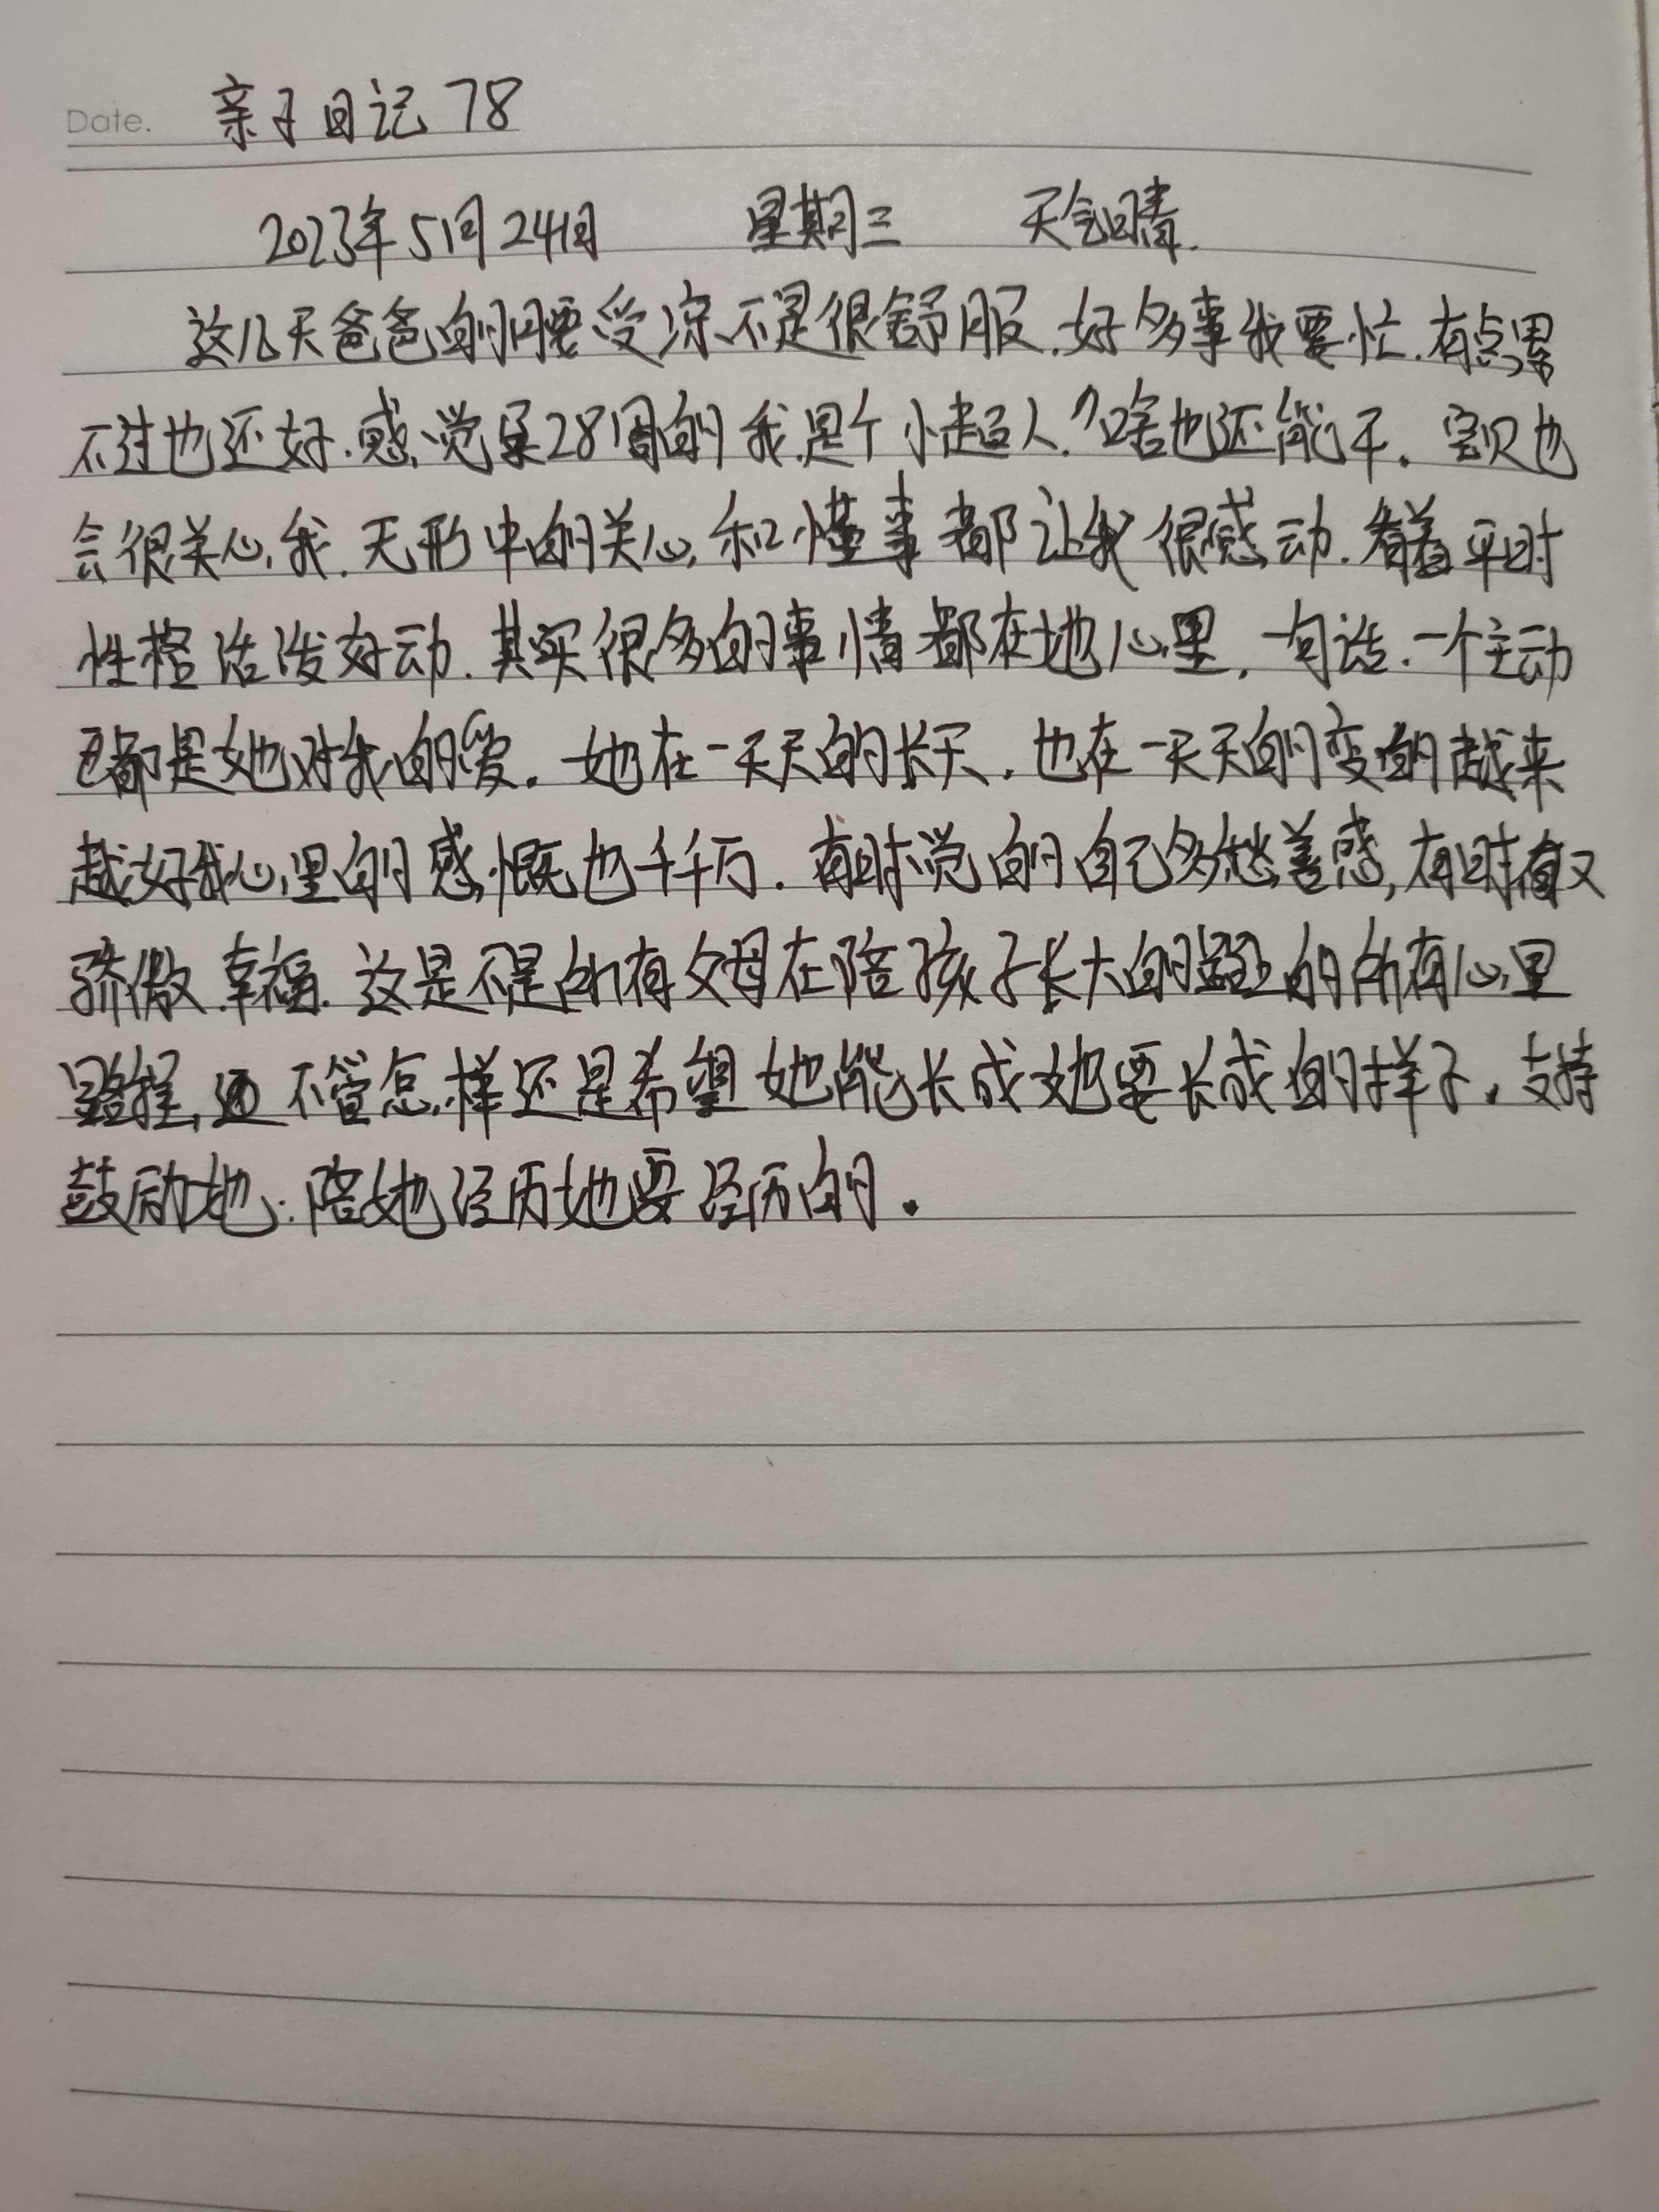 Date. 亲子日记 78
2023年5月24日 星期三 天气晴.
这几天爸爸的腰受凉不是很舒服.好多事我要忙.有点累
不过也还好.感觉28周的我是个小超人?啥也还能干。宝贝也
会很关心我.无形中的关心和懂事都让我很感动.看着平时
性格活泼好动.其实很多的事情都在她心里,一句话.一个主动
都是她对我的爱。她在一天天的长大.也在一天天的变的越来
越好我心里的感慨也千千万.有时觉的自己多愁善感,有时又
骄傲幸福.这是不是所有父母在陪孩子长大的的所有心里
路程,不管怎样还是希望她能长成她要长成的样子.支持
鼓励她:陪她经历她要经历的。